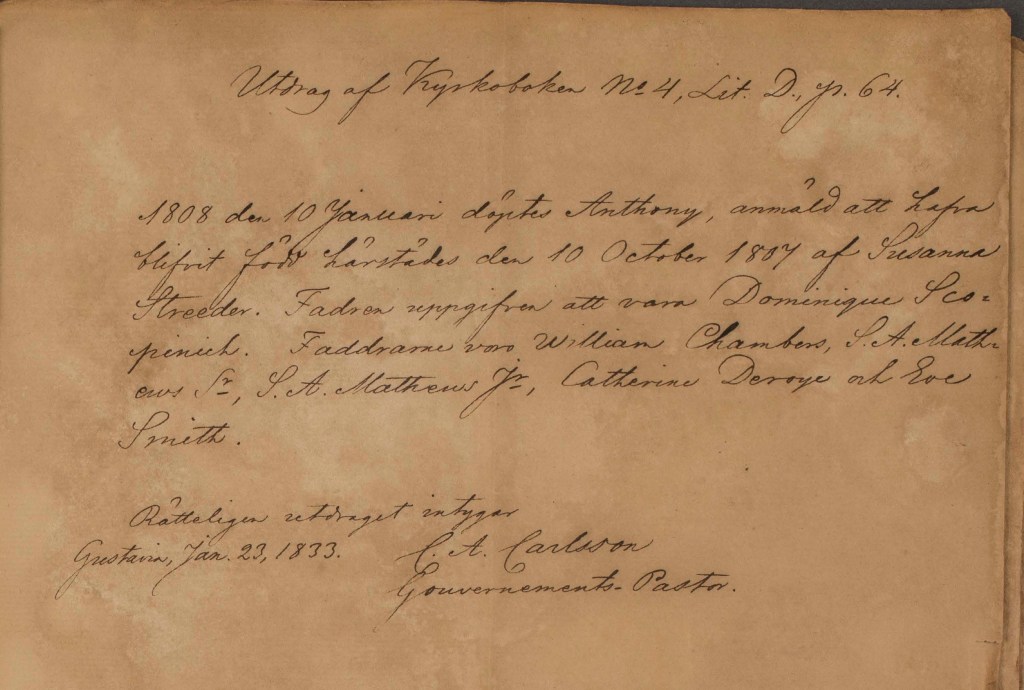 Utdrag af Kyrkoboken No 4, Lit. D., p. 64.
1808 den 10 Januari döptes Anthony, anmäld att hafva
blifvit född härstädes den 10 October 1807 af Susanna
Streeder. Fadren uppgifven att vara Dominique Sco=
pinich. Faddrarne voro William Chambers, S. A. Math=
ews Sr, S. A. Mathews Jr, Catherine Deroye och Eve
Smith.
Rätteligen utdraget intygar
Gustavia, Jan. 23, 1833. C. A. Carlsson
Gouvernements-Pastor.